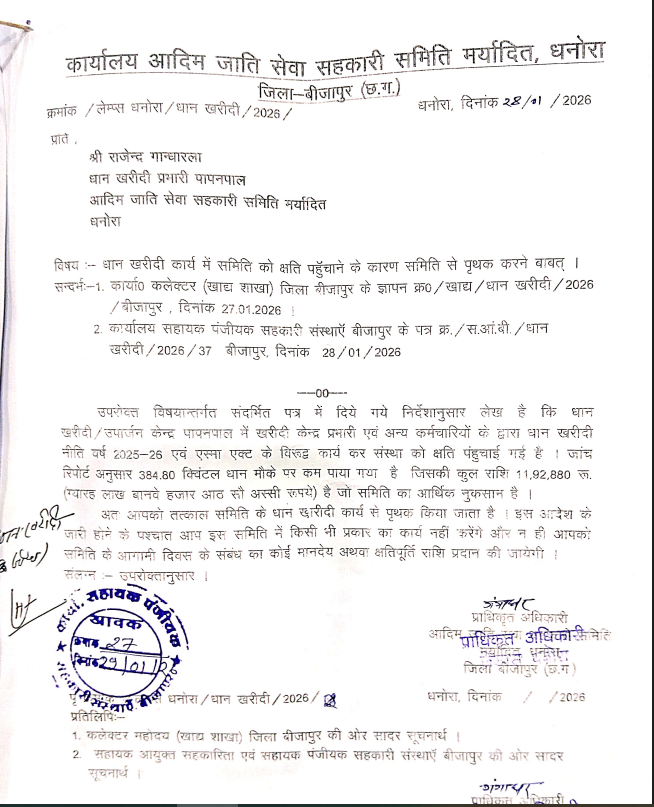 कार्यालय आदिम जाति सेवा सहकारी समिति मर्यादित, धनोरा
जिला–बीजापुर (छ.ग.)
क्रमांक /लेम्प्स धनोरा/धान खरीदी/2026/
धनोरा, दिनांक 28/01 /2026
प्रति,
श्री राजेन्द्र गान्धारला
धान खरीदी प्रभारी पापनपाल
आदिम जाति सेवा सहकारी समिति मर्यादित
धनोरा
विषय :– धान खरीदी कार्य में समिति को क्षति पहुँचाने के कारण समिति से पृथक करने बाबत् ।
सन्दर्भः–1. कार्या0 कलेक्टर (खाद्य शाखा) जिला बीजापुर के ज्ञापन क्र0/खाद्य/धान खरीदी/2026
/बीजापुर , दिनांक 27.01.2026 ।
2. कार्यालय सहायक पंजीयक सहकारी संस्थाऍ बीजापुर के पत्र क्र./स.आं.बी./धान
खरीदी/2026/37 बीजापुर, दिनांक 28/01/2026
––00––
उपरोक्त विषयान्तर्गत संदर्भित पत्र में दिये गये निर्देशानुसार लेख है कि धान
खरीदी/उपार्जन केन्द्र पापनपाल में खरीदी केन्द्र प्रभारी एवं अन्य कर्मचारियों के द्वारा धान खरीदी
नीति वर्ष 2025–26 एवं एस्मा एक्ट के विरूद्ध कार्य कर संस्था को क्षति पंहुचाई गई है । जांच
रिपोर्ट अनुसार 384.80 क्विंटल धान मौके पर कम पाया गया है जिसकी कुल राशि 11,92,880 रू.
(ग्यारह लाख बानवे हजार आठ सौ अस्सी रूपये) है जो समिति का आर्थिक नुकसान है ।
अतः आपको तत्काल समिति के धान खरीदी कार्य से पृथक किया जाता है । इस आदेश के
जारी होने के पश्चात आप इस समिति में किसी भी प्रकार का कार्य नहीं करेंगे और न ही आपको
समिति के आगामी दिवस के संबंध का कोई मानदेय अथवा क्षतिपूर्ति राशि प्रदान की जायेगी ।
संलग्न :– उपरोक्तानुसार ।
कार्या. सहायक पंजीयक
आवक
क्रमांक 27
दिनांक 29/01/2
सहकारी संस्थाऐं, बीजापुर
प्राधिकृत अधिकारी
आदिम समिति
प्राधिकृत अधिकारी
मर्यादित धनोरा
जिला बीजापुर (छ.ग)
धनोरा/धान खरीदी/2026/
धनोरा, दिनांक / /2026
प्रतिलिपिः–
1. कलेक्टर महोदय (खाद्य शाखा) जिला बीजापुर की ओर सादर सूचनार्थ ।
2. सहायक आयुक्त सहकारिता एवं सहायक पंजीयक सहकारी संस्थाऍ बीजापुर की ओर सादर
सूचनार्थ ।
प्राधिकृत अधिकारी